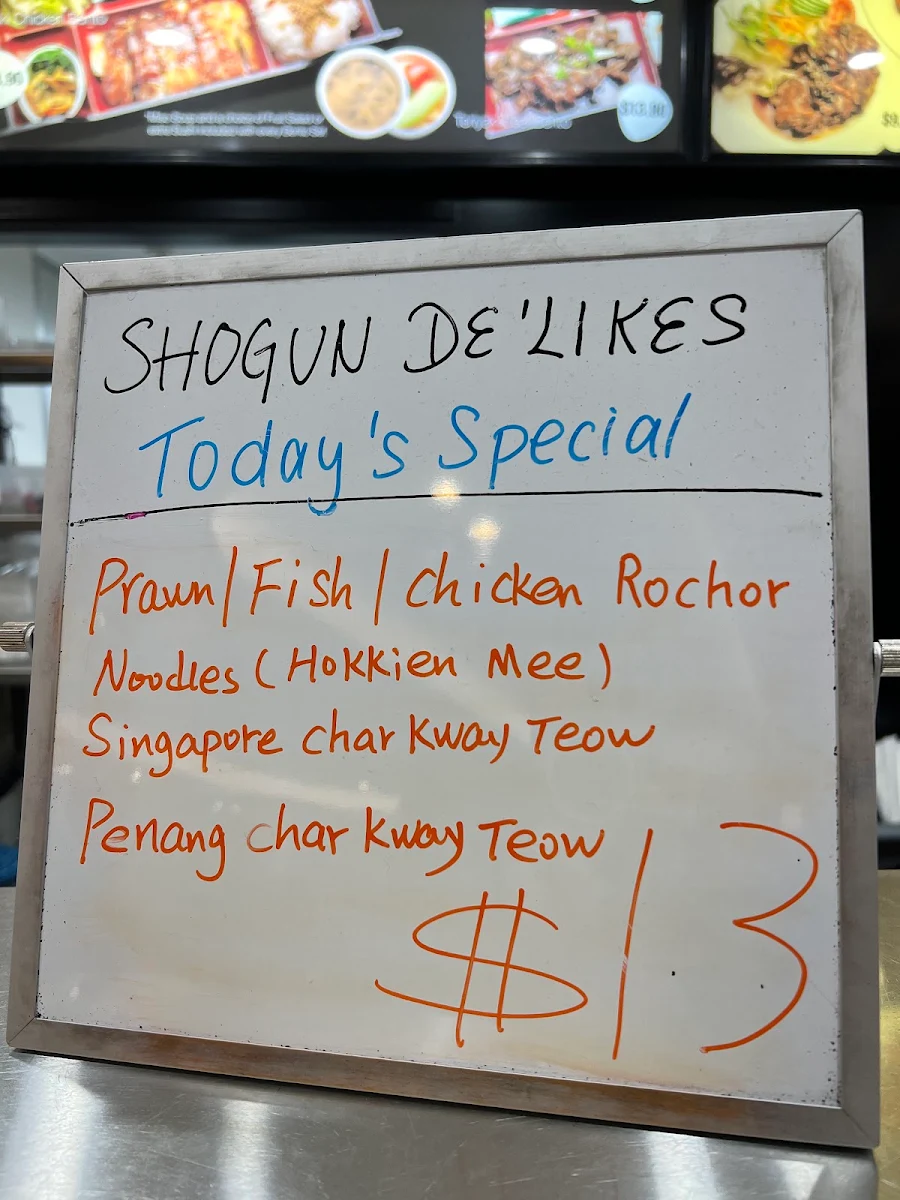 Chicken Bento
$13.90
SHOGUN DE'LIKES
Today's Special
Prawn/Fish/Chicken Rochor
Noodles (Hokkien Mee)
Singapore char Kway Teow
Penang char kway Teow
$13